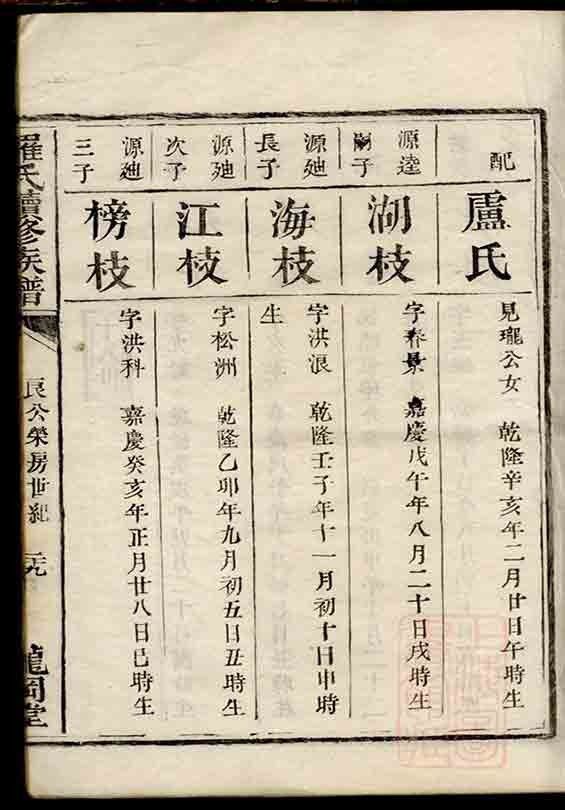 配
盧氏
見瓏公女　乾隆辛亥年二月廿日午時生
源逵
嗣子
湖枝
字春景　嘉慶戊午年八月二十日戌時生
源廸
長子
海枝
字洪浪　乾隆壬子年十一月初十日申時
生
源廸
次子
江枝
字松洲　乾隆乙卯年九月初五日丑時生
源廸
三子
榜枝
字洪科　嘉慶癸亥年正月廿八日巳時生
羅氏續修族譜
良公榮房世紀
龍岡堂